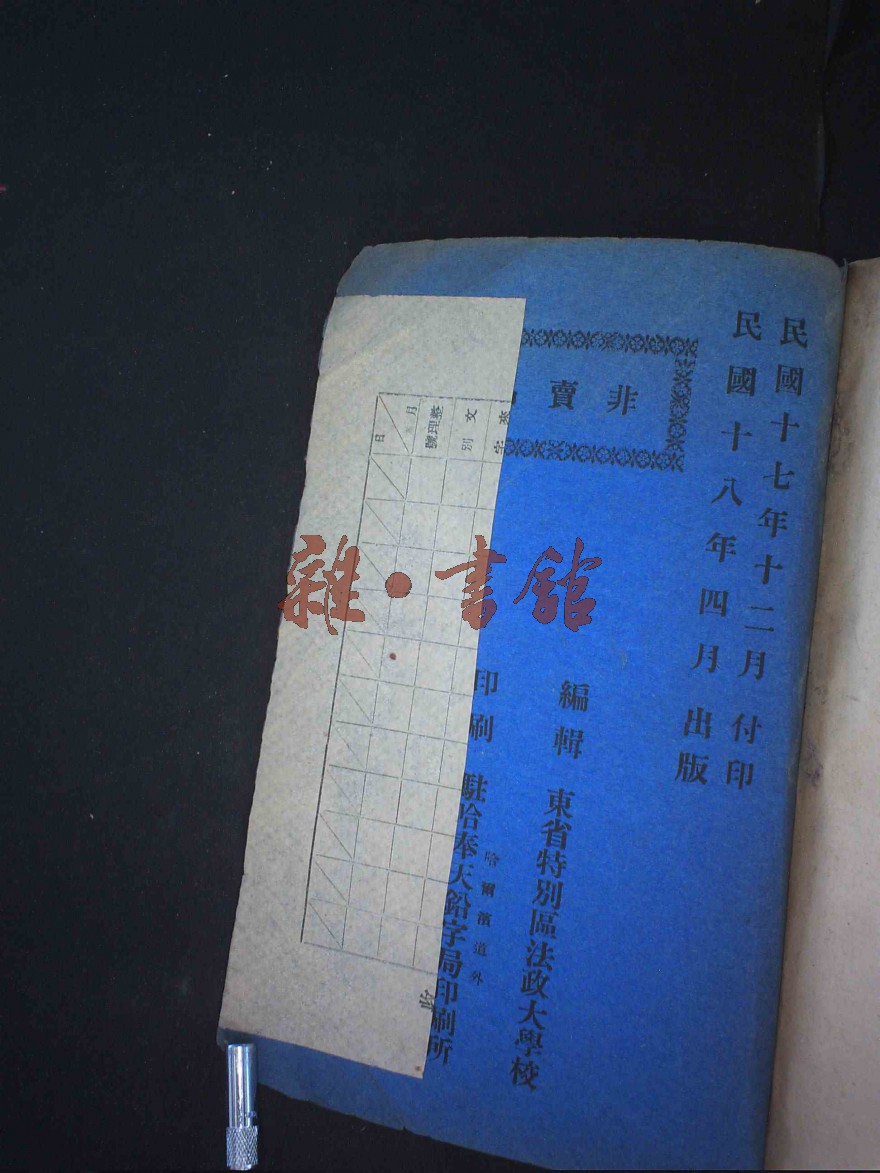 民國十七年十二月付印
民國十八年四月出版
非賣
編輯 東省特別區法政大學校
哈爾濱道外
印刷 駐哈奉天鉛字局印刷所
文別
整理號
月
日
雜·書館